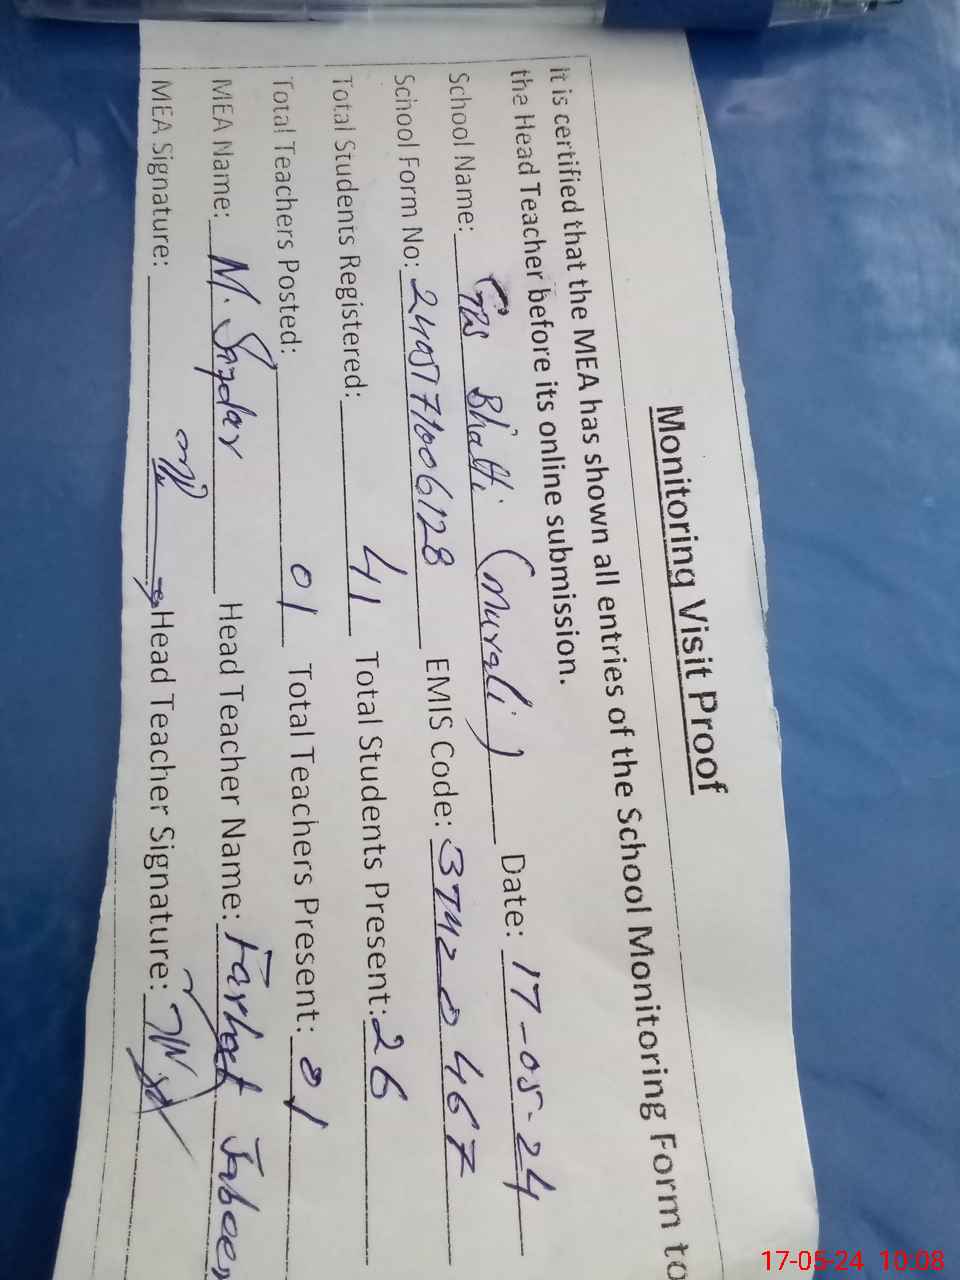 Monitoring Visit Proof
It is certified that the MEA has shown all entries of the School Monitoring Form to
the Head Teacher before its online submission.
School Name: GPS Bhatti (Murali) Date: 17-05-24
School Form No: EMIS Code: 37420467
Total Students Registered: 41 Total Students Present: 26
Total Teachers Posted: 01 Total Teachers Present: 01
MEA Name: M. Safdar Head Teacher Name: Farhat Jabeen
MEA Signature: Head Teacher Signature:
17-05-24 10:08